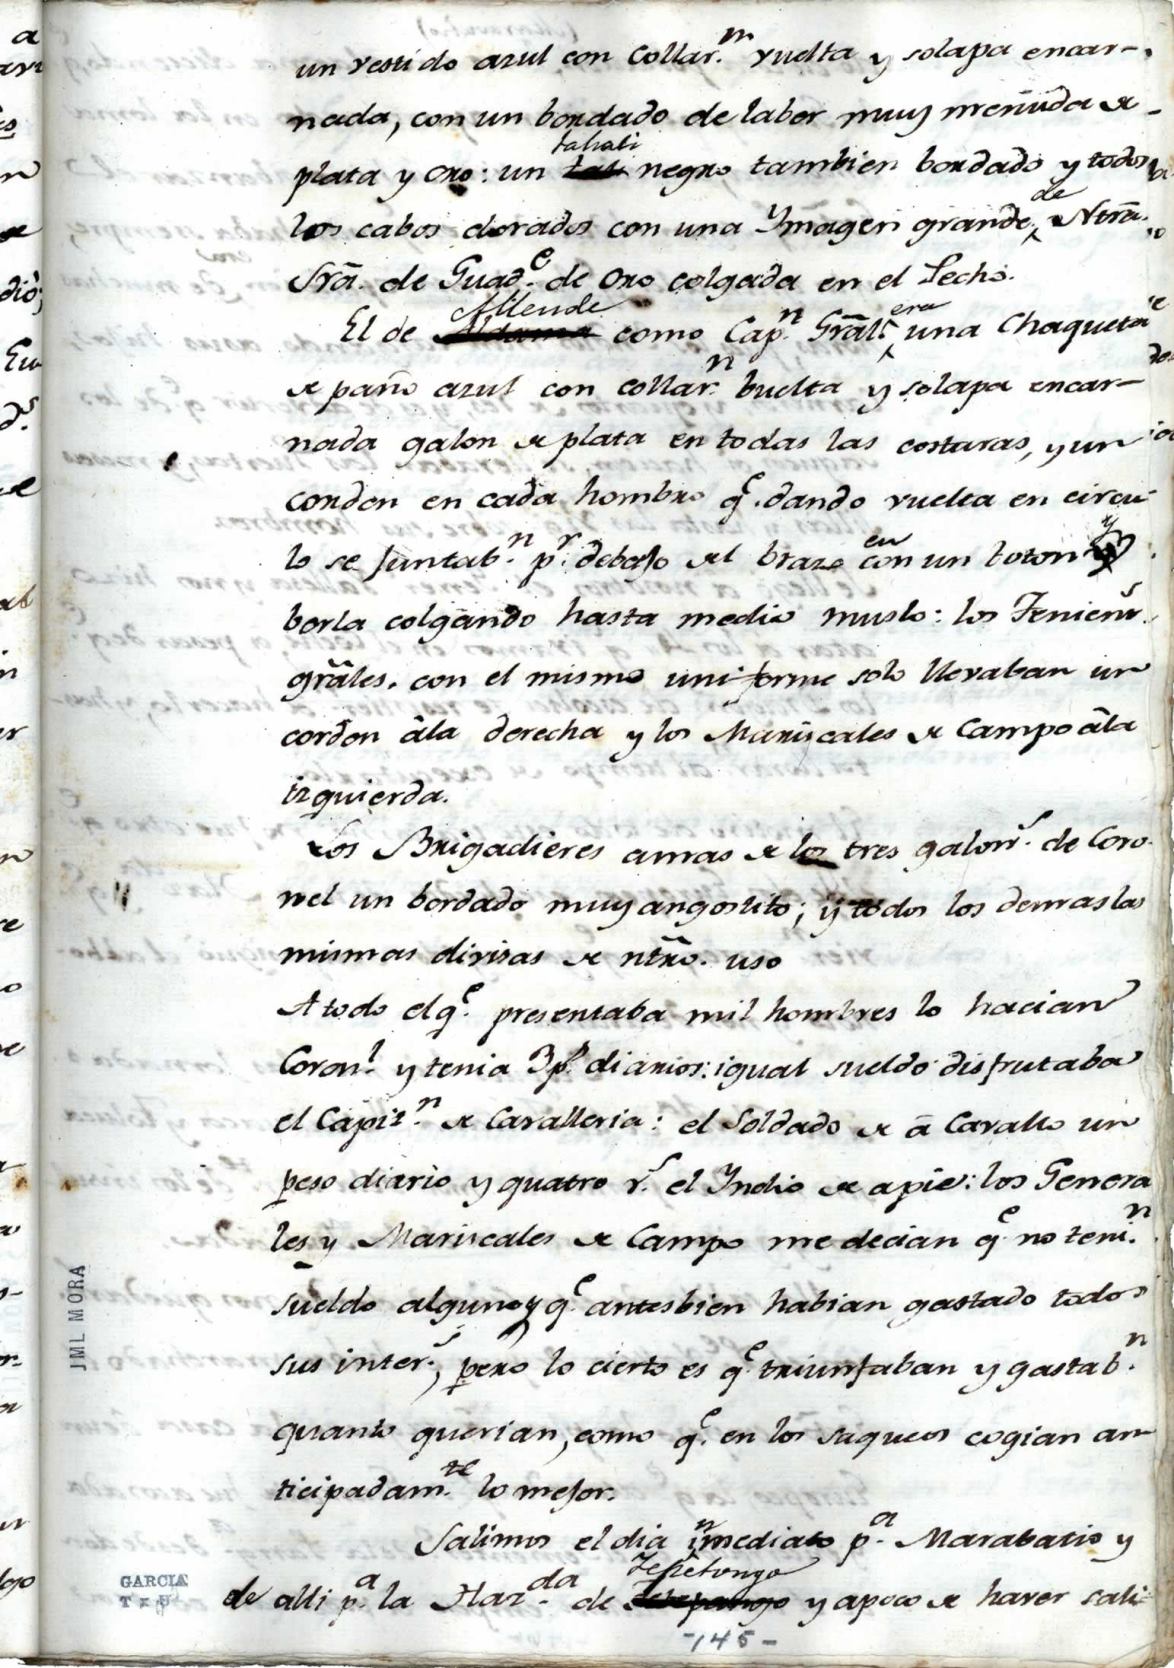 un vestido azul con Collar.n vuelta y solapa encar-
nada, con un bordado de labor muy menuda de
plata y oro: un tahali negro tambien bordado y todos
los cabos dorados con una Ymagen grande de Ntrã.
Srã. de Guad.e de oro colgada en el Pecho.
El de Allende como Cap.n Grãl. era una Chaqueta
de paño azul con collar.n buelta y solapa encar-
nada galon de plata en todas las costuras, y un
cordon en cada hombro q.e dando vuelta en circu-
lo se juntab.n p.r debajo del brazo en un boton y
borla colgando hasta medio muslo: los Tenien.s
grãles. con el mismo uniforme solo llevaban un
cordon âla derecha y los Mariscales de Campo âla
izquierda.
Los Brigadieres amas de los tres galon.s de Coro-
nel un bordado muy angostito; y todos los demas las
mismas divisas de ntrõ. uso
A todo el q.e presentaba mil hombres lo hacian
Coron.l y tenia 3 p.s diarios: igual sueldo disfrutaba
el Capit.n de Cavalleria: el Soldado de â Cavallo un
peso diario y quatro r.s el Yndio de apie: los Genera
les y Mariscales de Campo me decian q.e no teni.n
sueldo alguno y q.e antesbien habian gastado todos
sus inter.s, pero lo cierto es q.e triunfaban y gastab.n
quanto querian, como q.e en los saqueos cogian an-
ticipadam.te lo mejor.
Salimos el dia inmediato p.a Marabatio y
de alli p.a la Haz.da de Tepetongo y apoco de haver sali
-145-
JML MORA
GARCIA